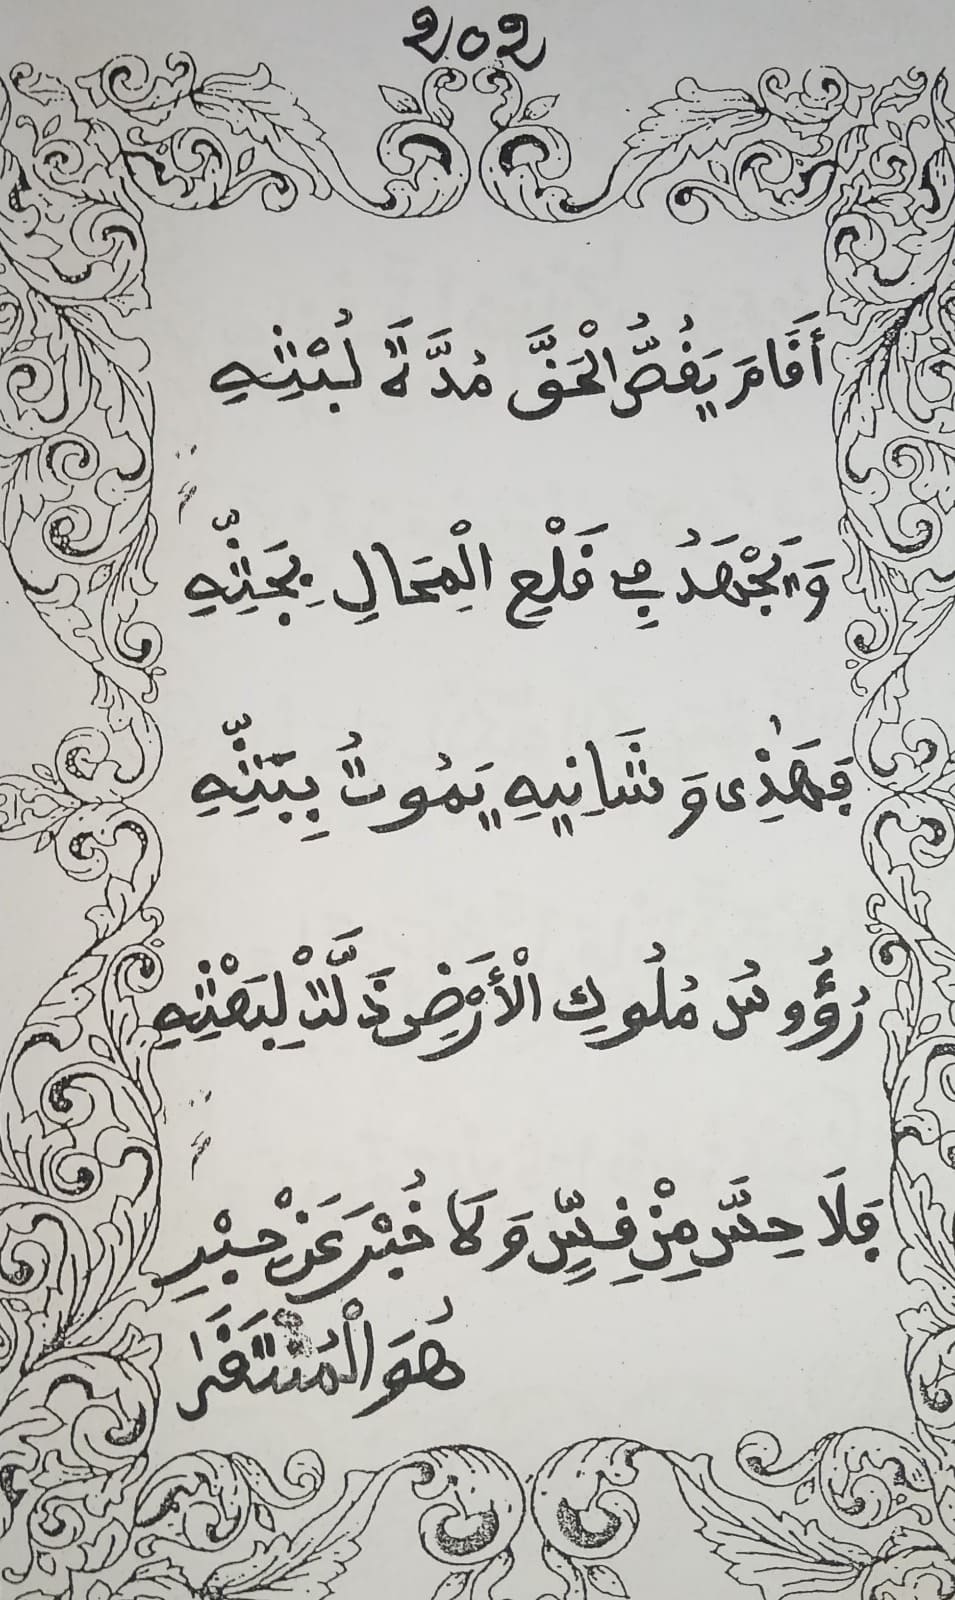 202
أَقَامَ يَقُصُّ الْحَقَّ مُدَّةَ لُبْثِهِ
وَيَجْهَدُ فِي قَلْعِ الْمِحَالِ بِجَثِّهِ
فَهَٰذِى وَثَانِيهِ يَمُوتُ بِبَثِّهِ
رُؤُوسُ مُلُوكِ الْأَرْضِ ذَلَّتْ لِبَعْثِهِ
فَلَا حِسَّ مِنْ فِسٍّ وَلَا خُبْرَ عَنْ حِبْرِ
هُوَ الْمُنْتَقَىٰ